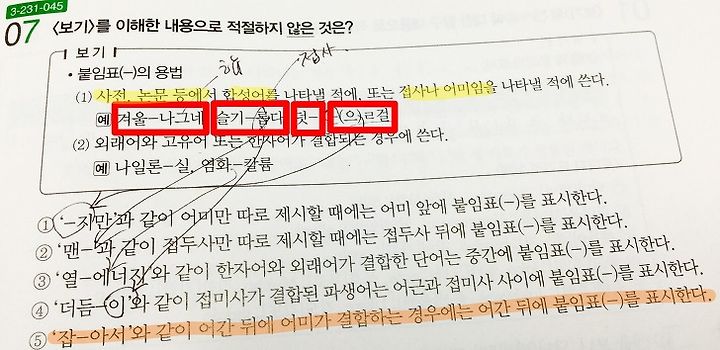 3-231-045
07 <보기>를 이해한 내용으로 적절하지 않은 것은?
보기
합 접사
• 붙임표(-)의 용법
(1) 사전, 논문 등에서 합성어를 나타낼 적에, 또는 접사나 어미임을 나타낼 적에 쓴다.
예 겨울-나그네 슬기-롭다 덧- -(으)ㄹ걸
(2) 외래어와 고유어 또는 한자어가 결합되는 경우에 쓴다.
예 나일론-실, 염화-칼륨
① '-지만'과 같이 어미만 따로 제시할 때에는 어미 앞에 붙임표(-)를 표시한다.
② '맨-'과 같이 접두사만 따로 제시할 때에는 접두사 뒤에 붙임표(-)를 표시한다.
③ '열-에너지'와 같이 한자어와 외래어가 결합한 단어는 중간에 붙임표(-)를 표시한다.
④ '더듬-이'와 같이 접미사가 결합된 파생어는 어근과 접미사 사이에 붙임표(-)를 표시한다.
⑤ '잡-아서'와 같이 어간 뒤에 어미가 결합하는 경우에는 어간 뒤에 붙임표(-)를 표시한다.